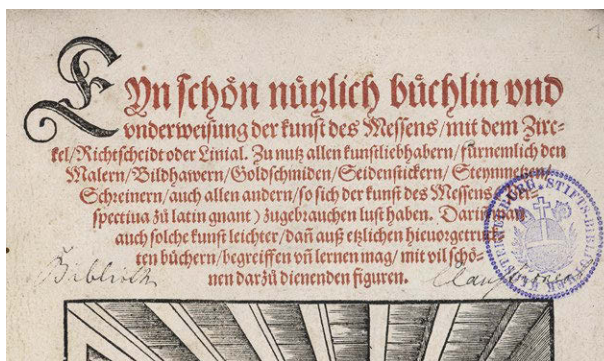 Eyn schön nützlich büchlin vnd
vnderweisung der kunst des Messens / mit dem Zirc-
kel / Richtscheidt oder Linial. Zu nutz allen kunstliebhabern / fürnemlich den
Malern / Bildhawern / Goldschmiden / Seidenstickern / Steynmetzen /
Schreinern / auch allen andern / so sich der kunst des Messens
spectiua zů latin gnant) zugebrauchen lust haben. Darin man
auch solche kunst leichter / dañ auß etzlichen hieuor getruck
ten büchern / begreiffen vñ lernen mag / mit vil schö-
nen darzů dienenden figuren.
Biblioth
STIFTS